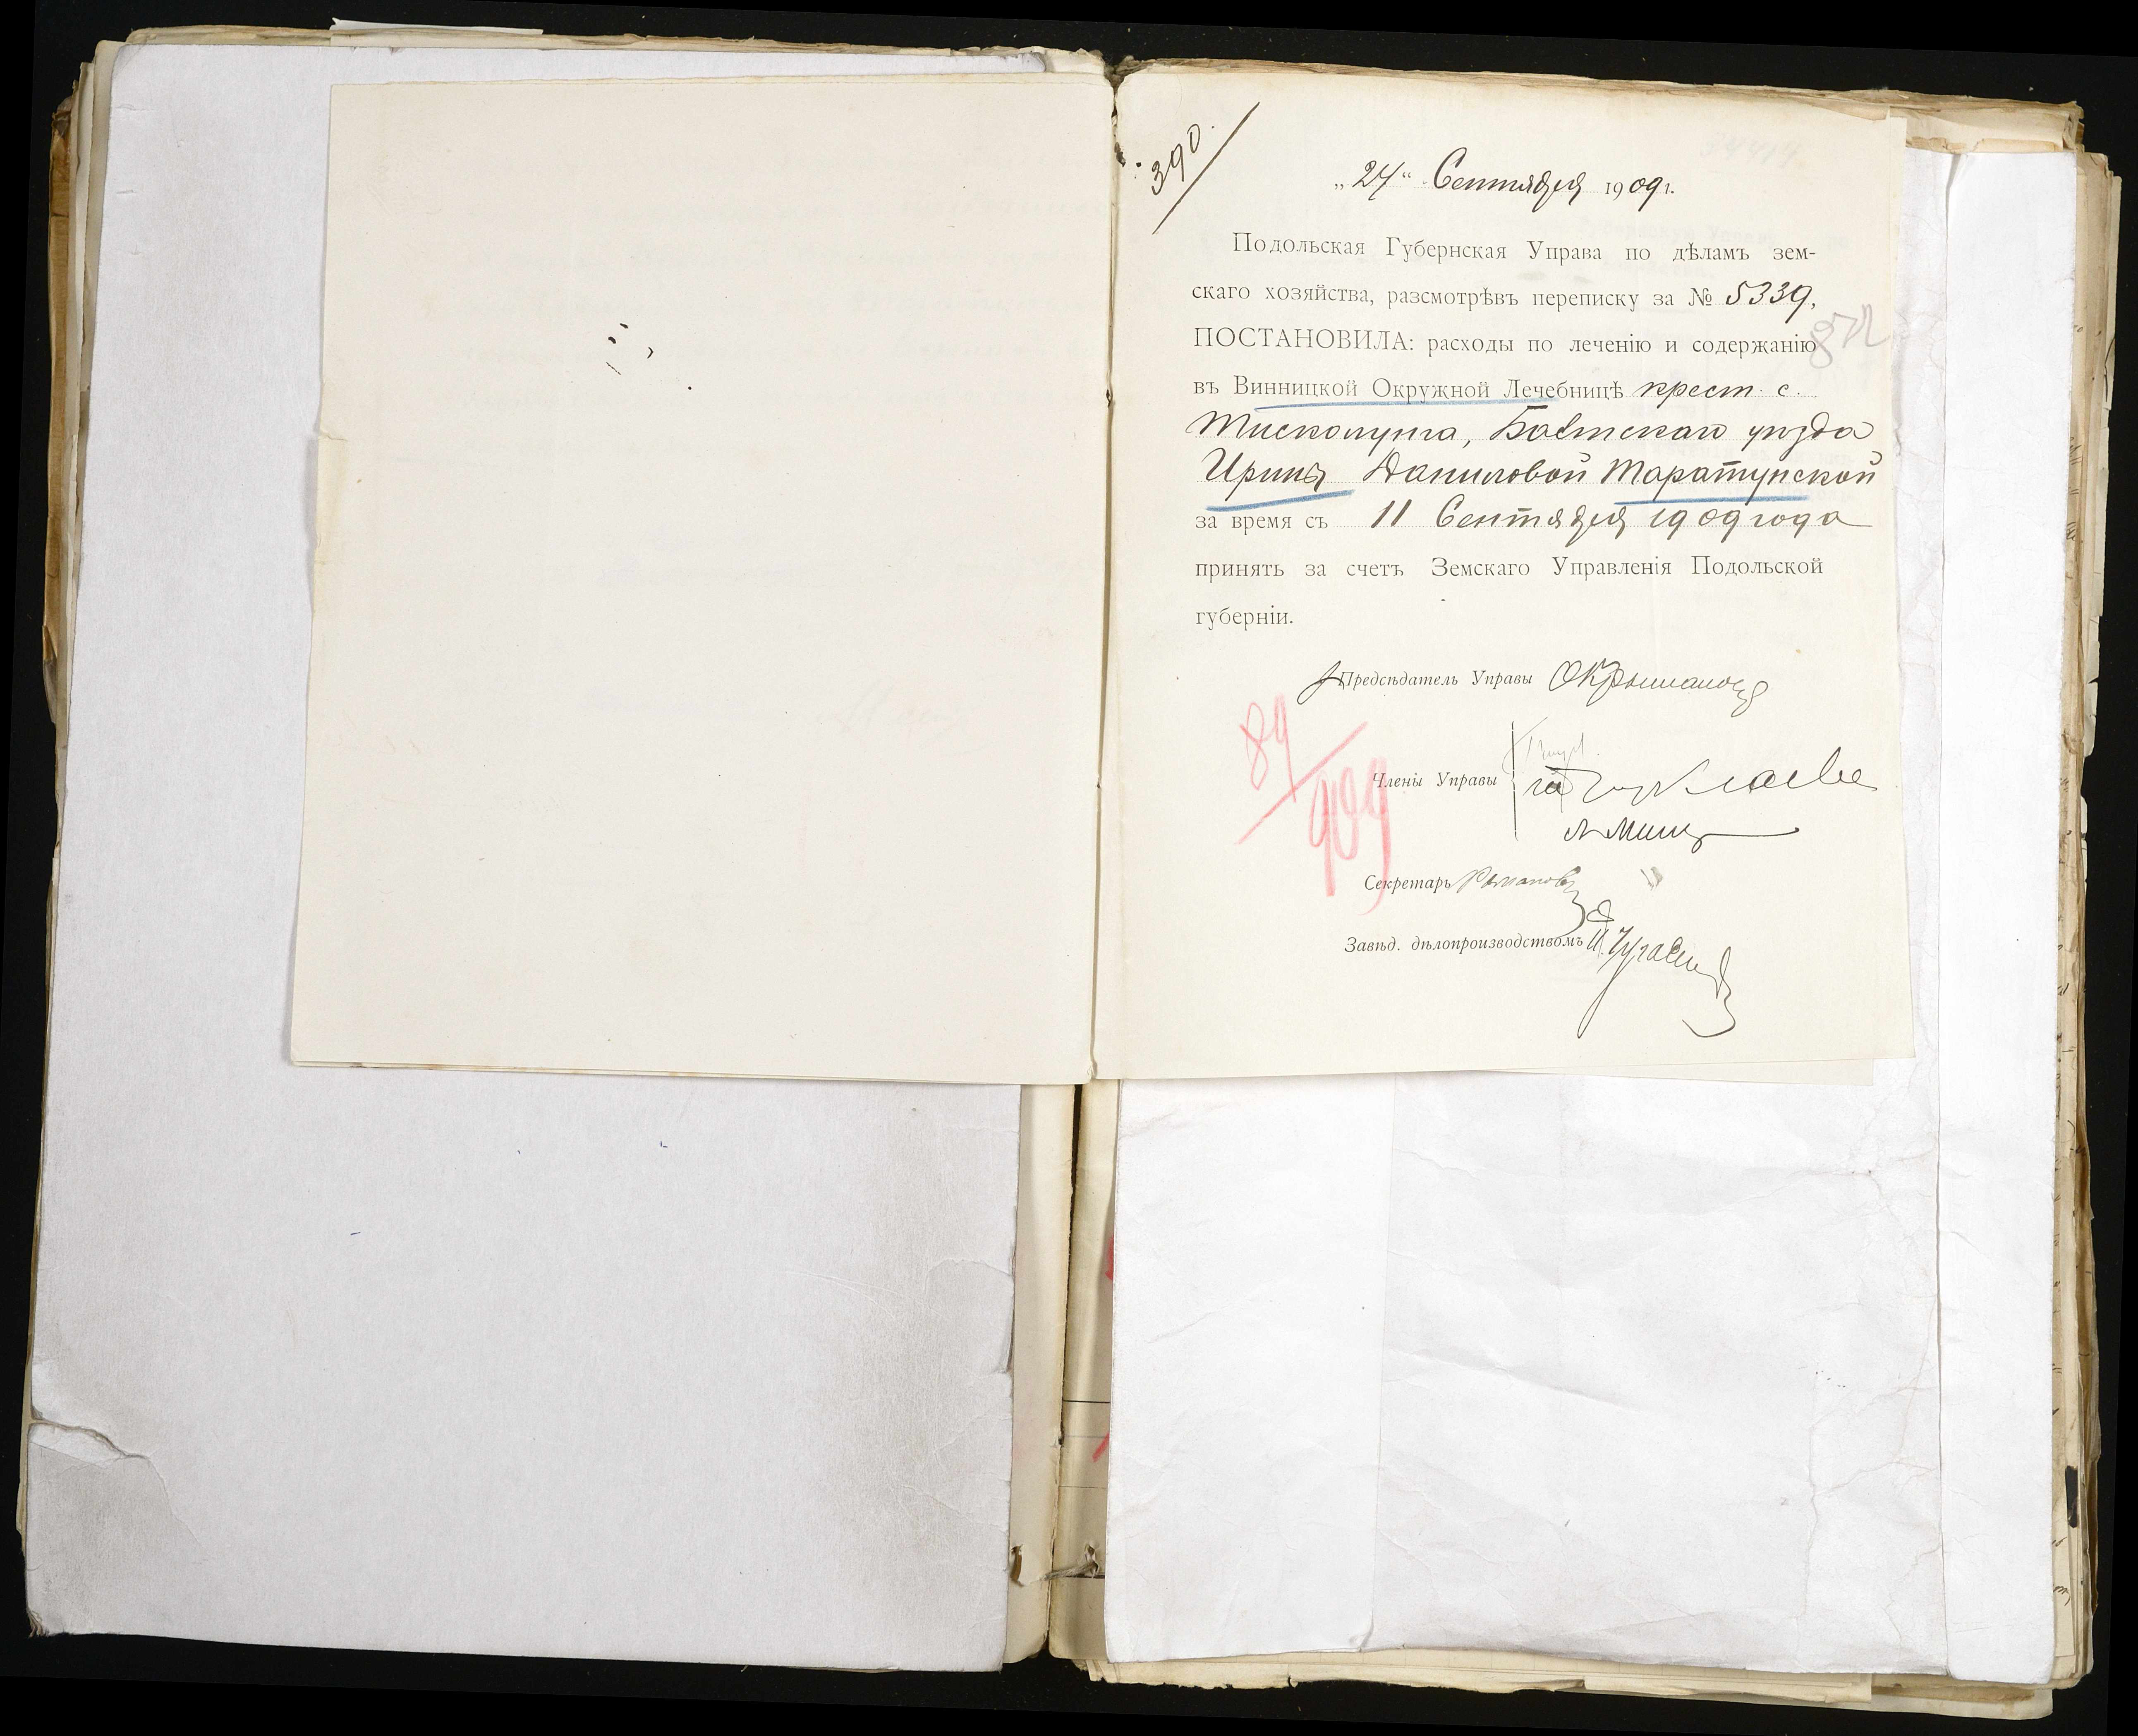 390.
„24“ Сентября 1909 г.
Подольская Губернская Управа по дѣламъ зем-
скаго хозяйства, разсмотрѣвъ переписку за № 5339,
ПОСТАНОВИЛА: расходы по леченію и содержанію
872
въ Винницкой Окружной Лечебницѣ крест. с.
Тисколунга, Балтскаго уѣзда
Ирины Даниловой Таратунской
за время съ 11 Сентября 1909 года
принять за счетъ Земскаго Управленія Подольской
губерніи.
Предсѣдатель Управы
84/909
Члены Управы
Секретарь Романовъ
Завѣд. дѣлопроизводствомъ